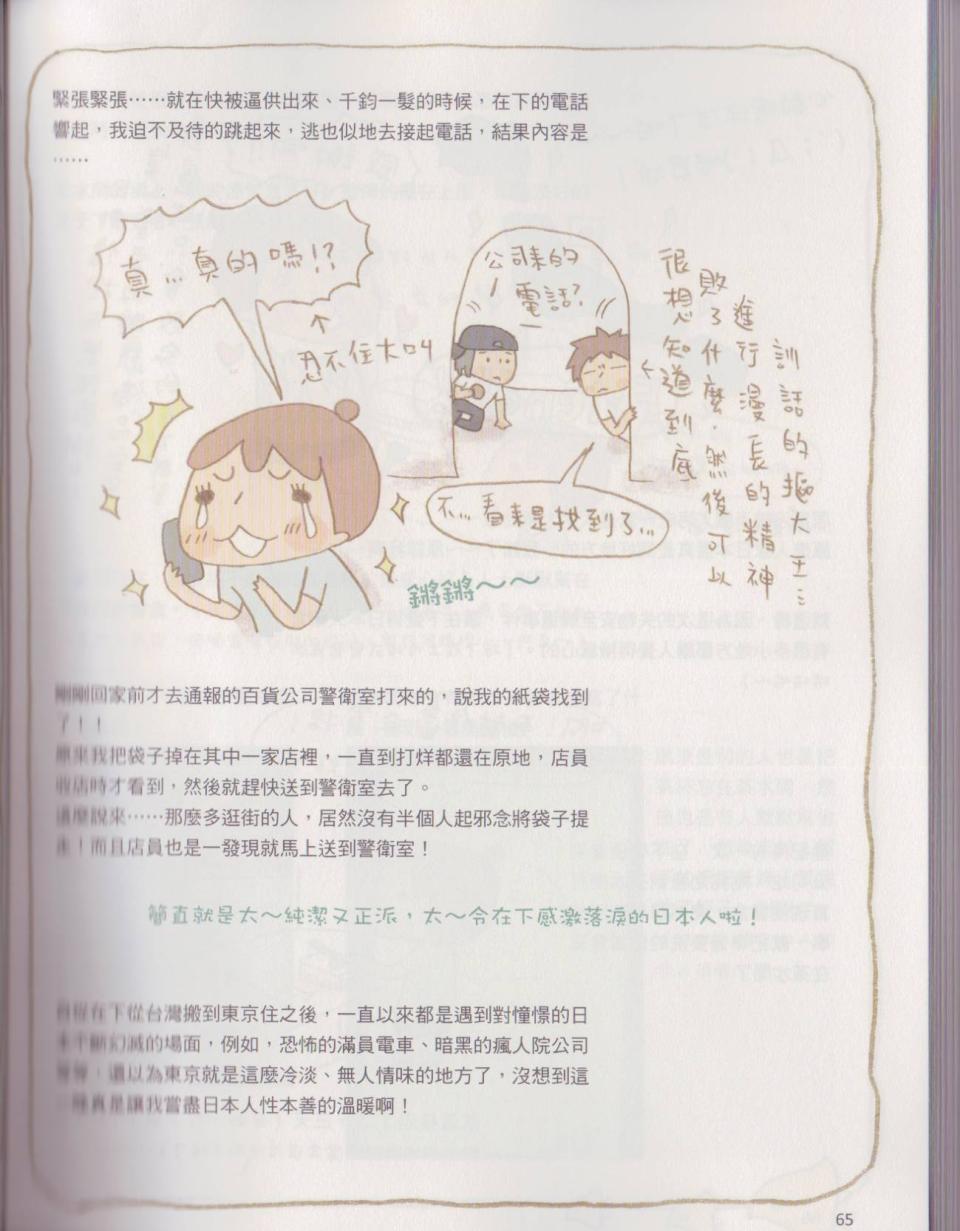 緊張緊張……就在快被逼供出來、千鈞一髮的時候，在下的電話
響起，我迫不及待的跳起來，逃也似地去接起電話，結果內容是
……
真…真的嗎!?
忍不住大叫
公司來的
電話?
訓話的摳大王…
進行漫長的精神
敗了什麼，然後可以
很想知道到底
不…看來是找到了…
鏘鏘～～
剛剛回家前才去通報的百貨公司警衛室打來的，說我的紙袋找到
了！！
原來我把袋子掉在其中一家店裡，一直到打烊都還在原地，店員
收店時才看到，然後就趕快送到警衛室去了。
這麼說來……那麼多逛街的人，居然沒有半個人起邪念將袋子提
走！而且店員也是一發現就馬上送到警衛室！
簡直就是太～純潔又正派，太～令在下感激落淚的日本人啦！
在下從台灣搬到東京住之後，一直以來都是遇到對憧憬的日
幻滅的場面，例如，恐怖的滿員電車、暗黑的瘋人院公司
還以為東京就是這麼冷淡、無人情味的地方了，沒想到這
真是讓我嘗盡日本人性本善的溫暖啊！
65